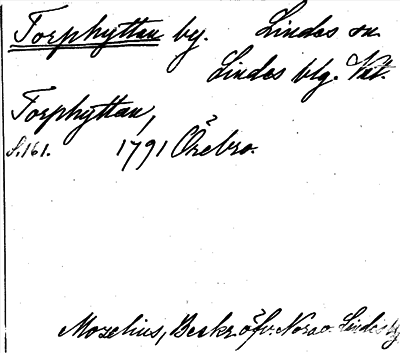 Torphyttan by. Lindes sn.
Lindes blg. Vstl.
Torphyttan,
S. 161. 1791 Örebro.
Mozelius, Beskr. öfv. Nora o. Lindes bg